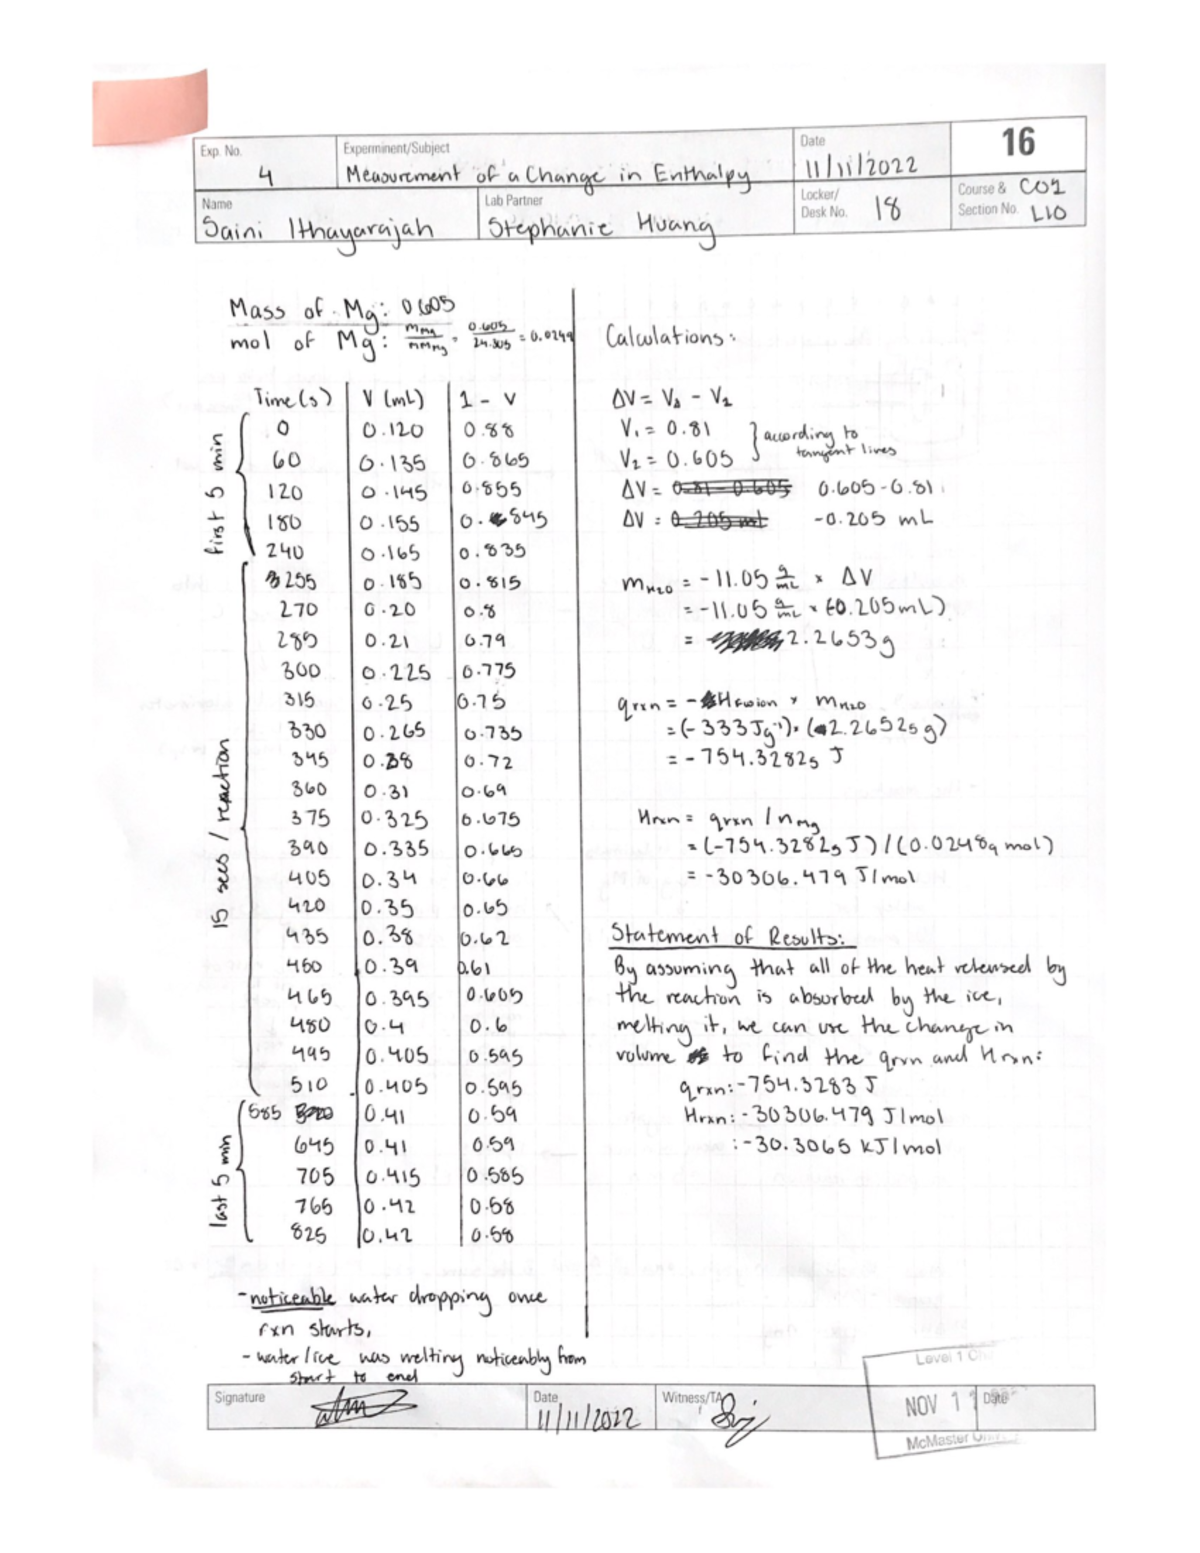 Exp. No. 4
Experminent/Subject Measurement of a Change in Enthalpy
Date 11/11/2022
16
Name Saini Ithayarajah
Lab Partner Stephanie Huang
Locker/ Desk No. 18
Course & Section No. C01 L10
Mass of Mg: 0.605
mol of Mg: mMg/MMMg = 0.605/24.305 = 0.0249
Time (s) V (mL) 1 - V
first 5 min
0 0.120 0.88
60 0.135 0.865
120 0.145 0.855
180 0.155 0.845
240 0.165 0.835
15 secs / reaction
255 0.185 0.815
270 0.20 0.8
285 0.21 0.79
300 0.225 0.775
315 0.25 0.75
330 0.265 0.735
345 0.28 0.72
360 0.31 0.69
375 0.325 0.675
390 0.335 0.665
405 0.34 0.66
420 0.35 0.65
435 0.38 0.62
450 0.39 0.61
465 0.395 0.605
480 0.4 0.6
495 0.405 0.595
510 0.405 0.595
last 5 min
585 0.41 0.59
645 0.41 0.59
705 0.415 0.585
765 0.42 0.58
825 0.42 0.58
- noticeable water dropping once
rxn starts,
- water/ice was melting noticeably from
start to end
Calculations:
ΔV = V₂ - V₁
V₁ = 0.81
V₂ = 0.605
according to
tangent lines
ΔV = 0.81 - 0.605 0.605 - 0.81
ΔV = 0.205 mL -0.205 mL
mH2O = -11.05 g/mL × ΔV
= -11.05 g/mL × (-0.205mL)
= 2.2653g
qrxn = - Hfusion × mH2O
= (-333Jg⁻¹) × (2.26525g)
= -754.32825 J
Hrxn = qrxn / nMg
= (-754.32825 J) / (0.02489 mol)
= -30306.479 J/mol
Statement of Results:
By assuming that all of the heat released by
the reaction is absorbed by the ice,
melting it, we can use the change in
volume to find the qrxn and Hrxn:
qrxn: -754.3283 J
Hrxn: -30306.479 J/mol
: -30.3065 kJ/mol
Level 1 Ch
NOV 1 1
McMaster Univ.
Signature
Date 11/11/2022
Witness/TA
Date